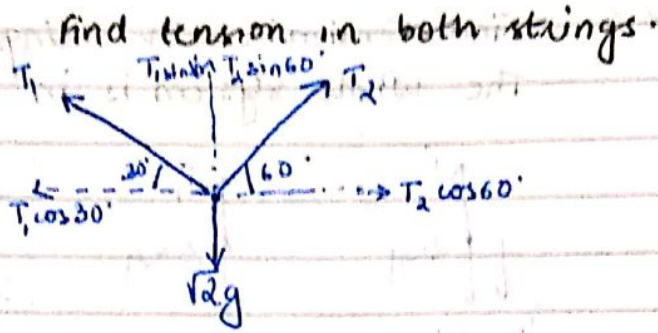 Find tension in both strings.
T₁ T₂ sin60° T₂
30° 60°
T₁cos30° T₂ cos60°
√2g